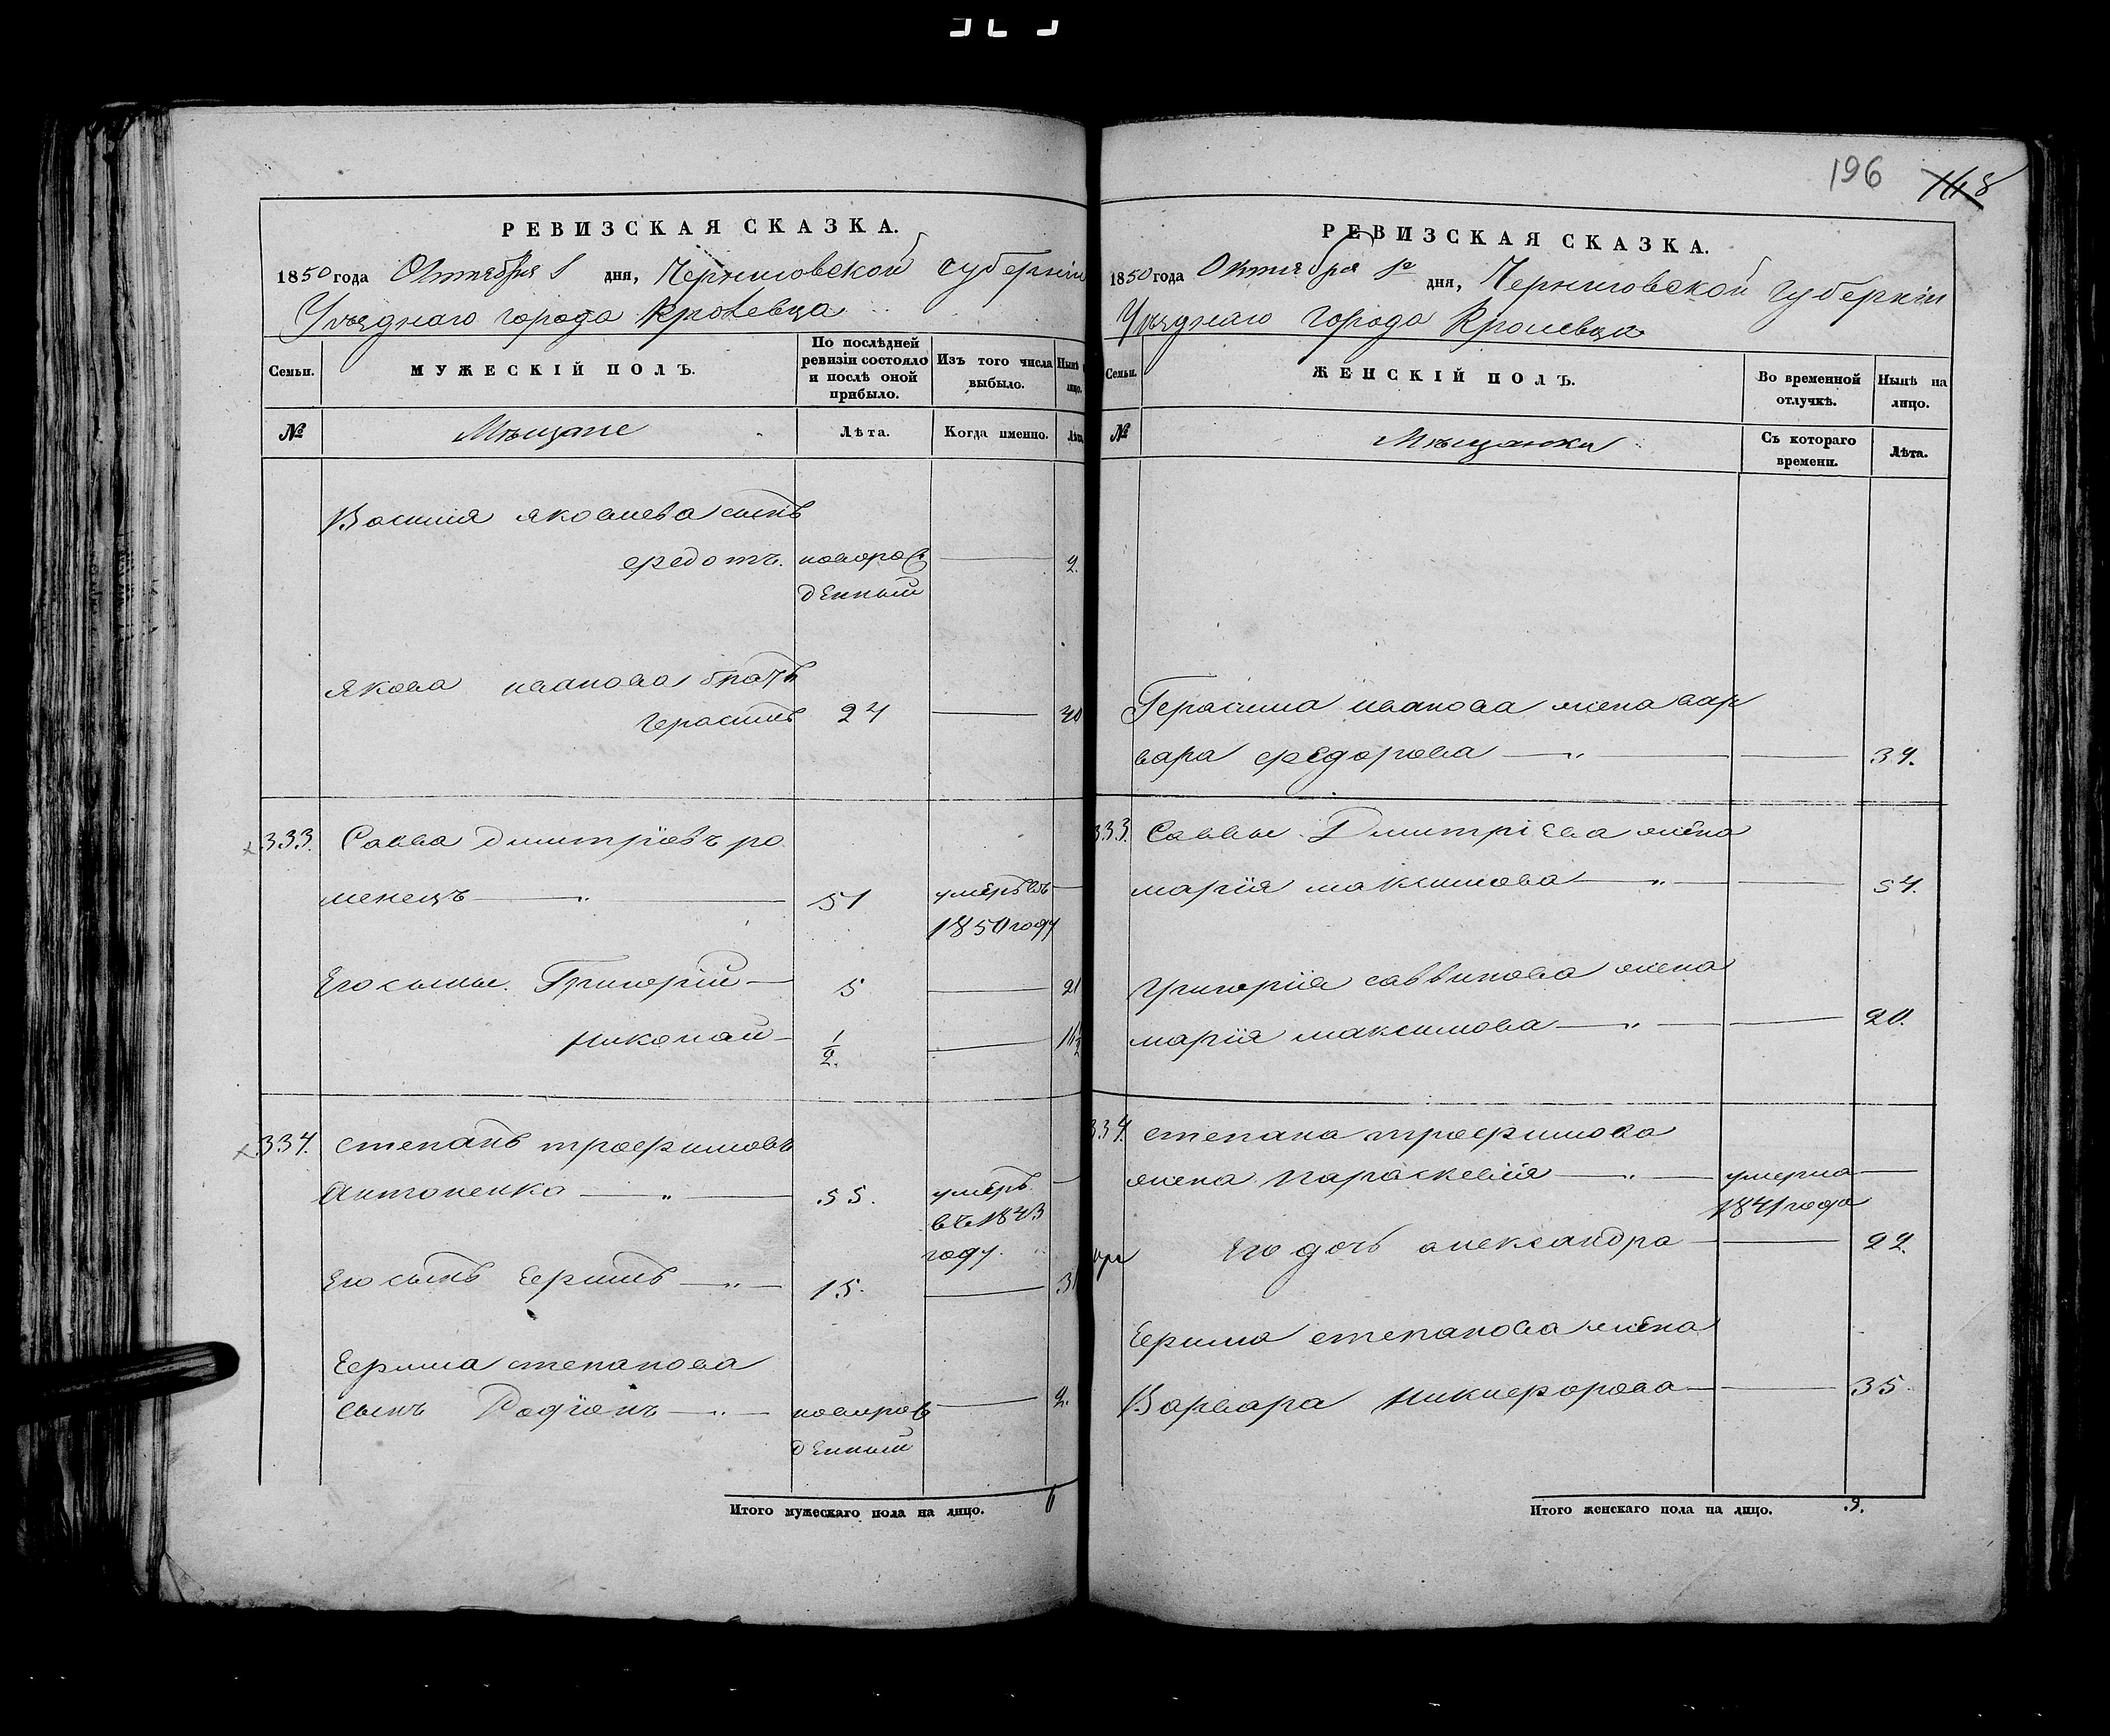 196 148
РЕВИЗСКАЯ СКАЗКА.
1850 года Октября 1 дня, Черниговской губерніи
Уѣзднаго города Кролевца
Семьи.
МУЖЕСКІЙ ПОЛЪ.
По послѣдней ревизіи состояло и послѣ оной прибыло.
Изъ того числа выбыло.
Нынѣ лицо.
№
Мѣщане
Лѣта.
Когда именно.
Лѣта
Василія яковлева сынъ
Федотъ. новорож ——— 2.
денный
якова иванова братъ
герасимъ 24 ——— 40
333. Савва дмитріевъ ро
менецъ —"— 51 умеръ въ —
1850 году
Его сыны. Григорій — 5 ——— 21
николай — 1/2. ——— 16 1/2
334. степанъ трофимовъ
Антоненко —"— 55. умеръ —
въ 1843
году.
Его сынъ Ефимъ —"— 15. ——— 31
Ефима степанова
сынъ Родіонъ —"— новорож ——— 2.
денный
Итого мужескаго пола на лицо. 6
РЕВИЗСКАЯ СКАЗКА.
1850 года Октября 1го дня, Черниговской губерніи
Уѣзднаго города Кролевца
Семьи.
ЖЕНСКІЙ ПОЛЪ.
Во временной отлучкѣ.
Нынѣ на лицо.
№
Мѣщанки
Съ котораго времени.
Лѣта.
Герасима иванова жена вар
вара федорова —"— ——— 39.
333. Саввы Дмитріева жена
марія максимова —"— ——— 54.
григорія саввинова жена
марія максимова —"— ——— 20.
334. степана трофимова
жена параскевія —"— умерла —
1841 года
Его дочь александра ——— 22.
Ефима степанова жена
Варвара никифорова ——— 35.
Итого женскаго пола на лицо.